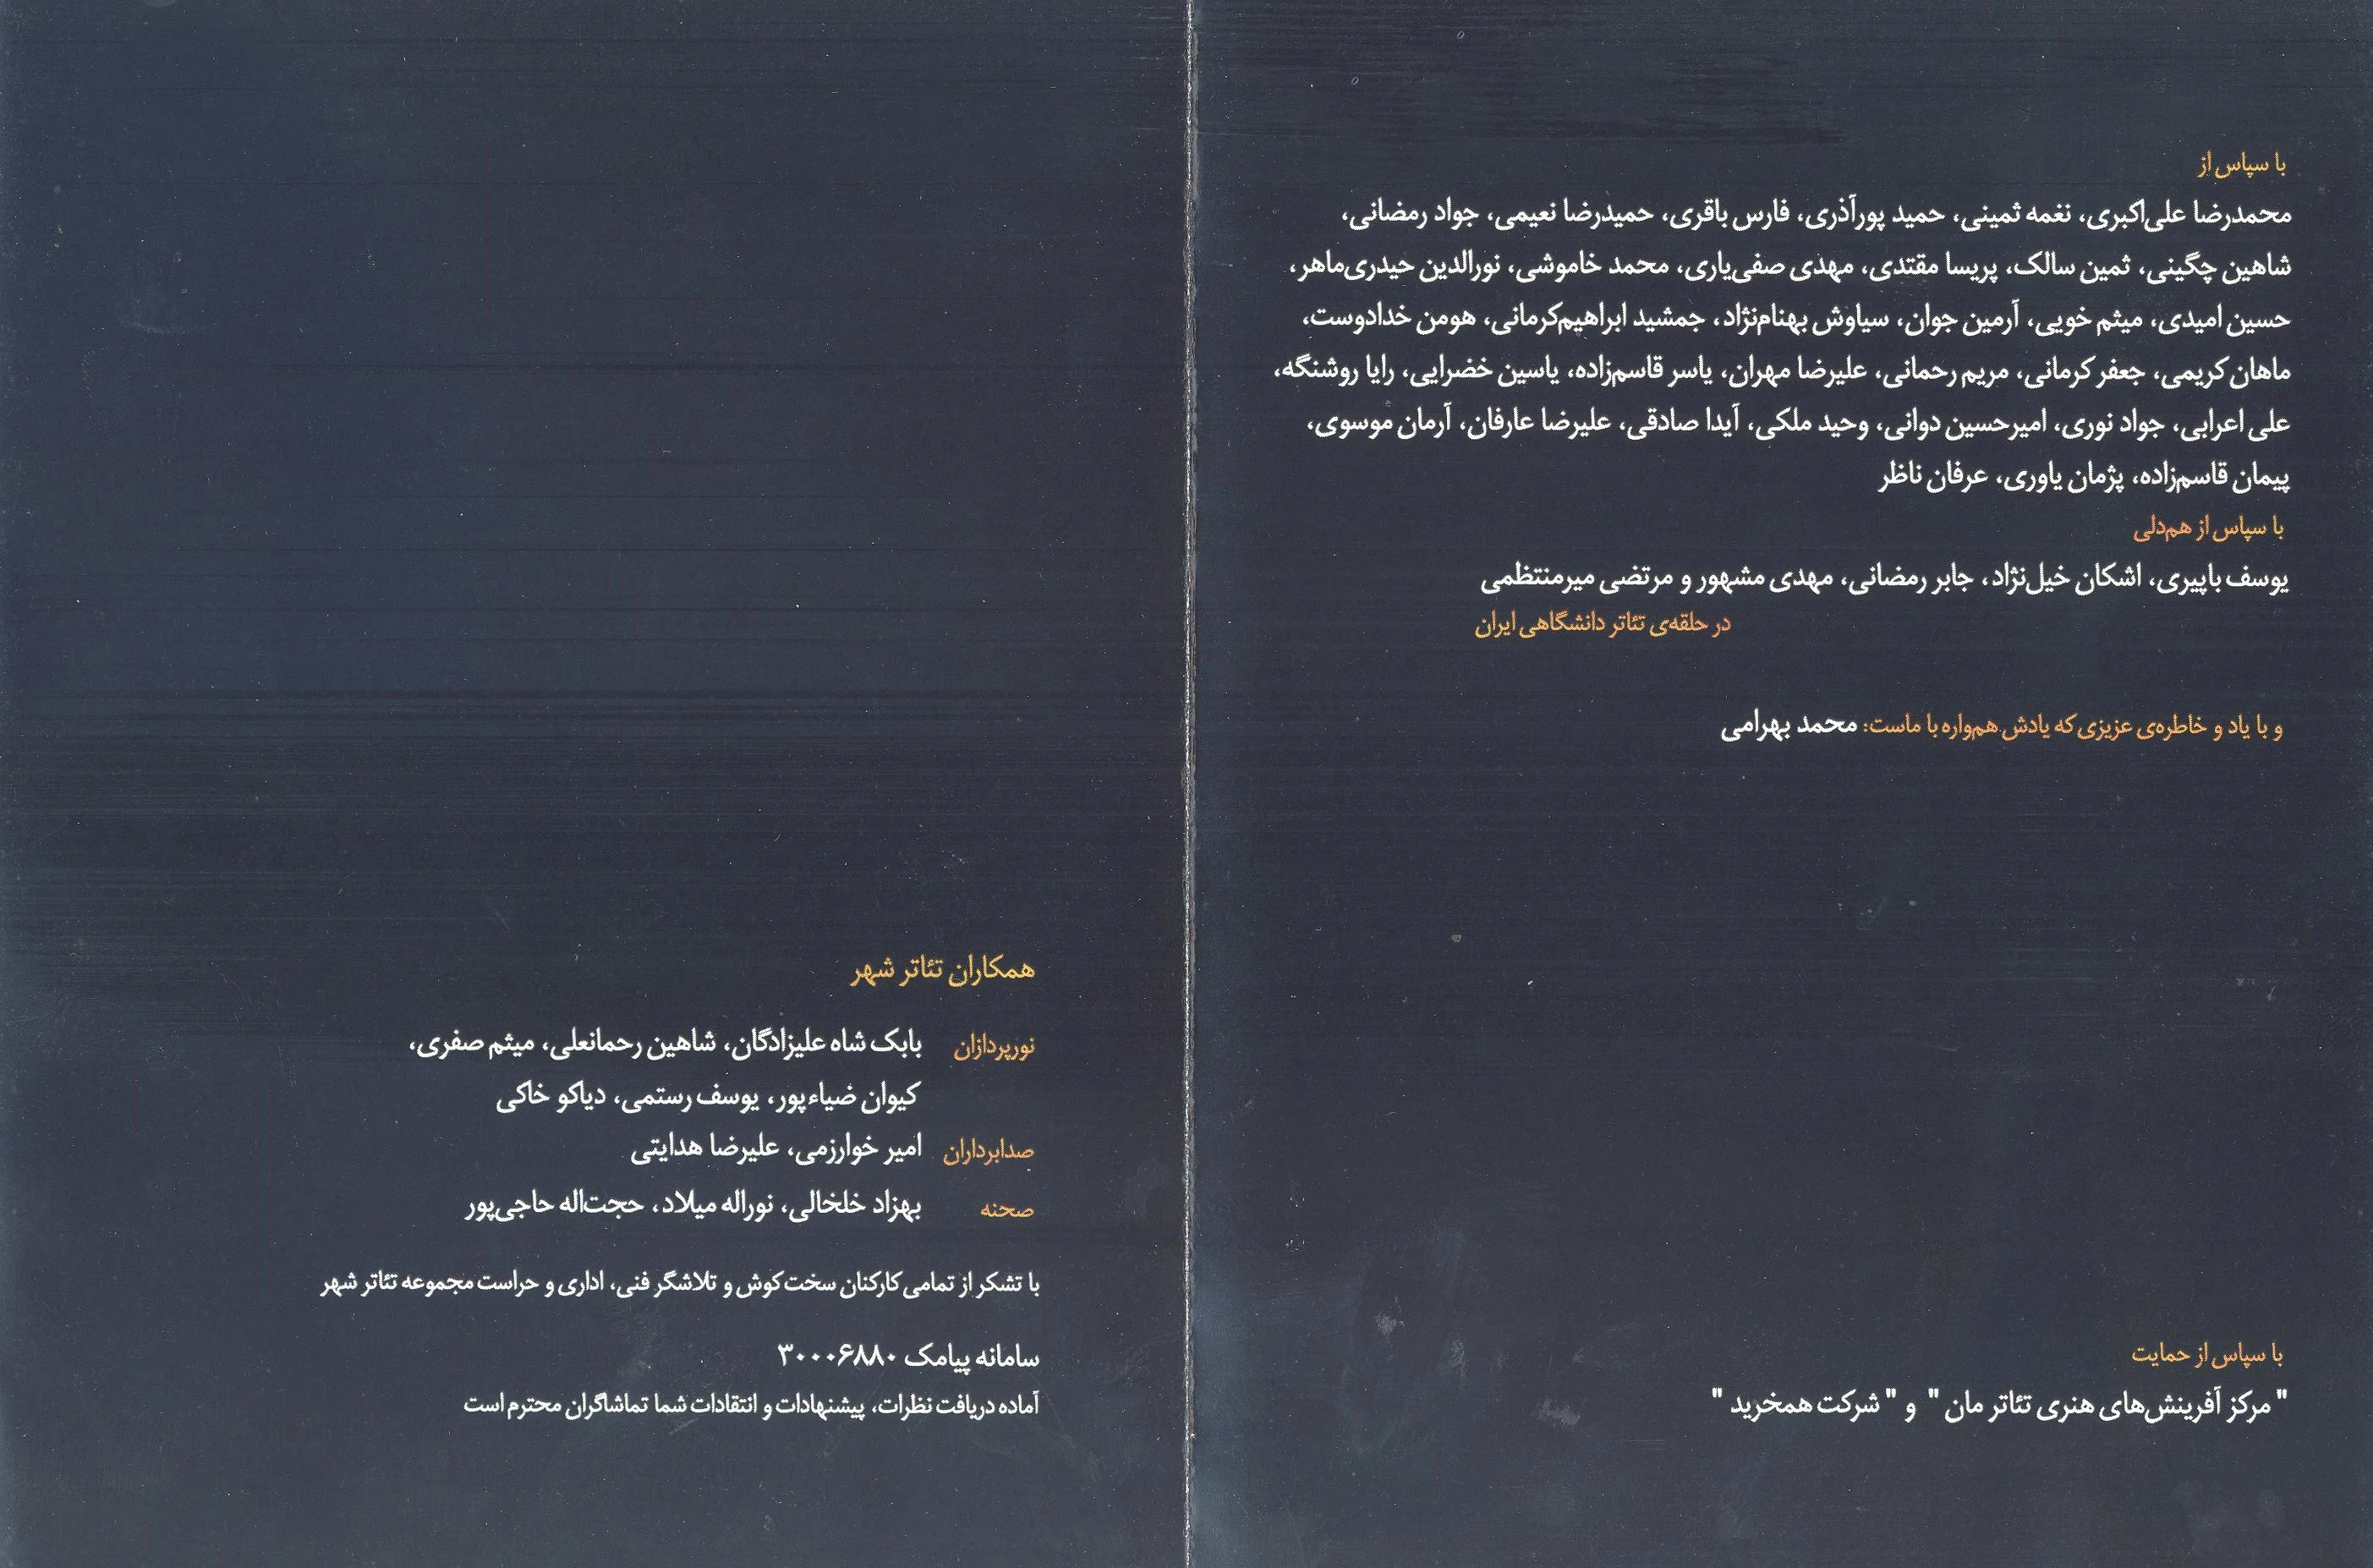 با سپاس از
محمدرضا علی‌اکبری، نغمه ثمینی، حمید پورآذری، فارس باقری، حمیدرضا نعیمی، جواد رمضانی،
شاهین چگینی، ثمین سالک، پریسا مقتدی، مهدی صفی‌یاری، محمد خاموشی، نورالدین حیدری‌ماهر،
حسین امیدی، میثم خویی، آرمین جوان، سیاوش بهنام‌نژاد، جمشید ابراهیم‌کرمانی، هومن خدادوست،
ماهان کریمی، جعفر کرمانی، مریم رحمانی، علیرضا مهران، یاسر قاسم‌زاده، یاسین خضرایی، رایا روشنگه،
علی اعرابی، جواد نوری، امیرحسین دوانی، وحید ملکی، آیدا صادقی، علیرضا عارفان، آرمان موسوی،
پیمان قاسم‌زاده، پژمان یاوری، عرفان ناظر
با سپاس از هم‌دلی
یوسف باپیری، اشکان خیل‌نژاد، جابر رمضانی، مهدی مشهور و مرتضی میرمنتظمی
در حلقه‌ی تئاتر دانشگاهی ایران
و با یاد و خاطره‌ی عزیزی که یادش هم‌واره با ماست: محمد بهرامی
با سپاس از حمایت
" مرکز آفرینش‌های هنری تئاتر مان " و " شرکت همخرید "
همکاران تئاتر شهر
نورپردازان بابک شاه علیزادگان، شاهین رحمانعلی، میثم صفری،
کیوان ضیاءپور، یوسف رستمی، دیاکو خاکی
صدابرداران امیر خوارزمی، علیرضا هدایتی
صحنه بهزاد خلخالی، نوراله میلاد، حجت‌اله حاجی‌پور
با تشکر از تمامی کارکنان سخت‌کوش و تلاشگر فنی، اداری و حراست مجموعه تئاتر شهر
سامانه پیامک ۳۰۰۰۶۸۸۰
آماده دریافت نظرات، پیشنهادات و انتقادات شما تماشاگران محترم است